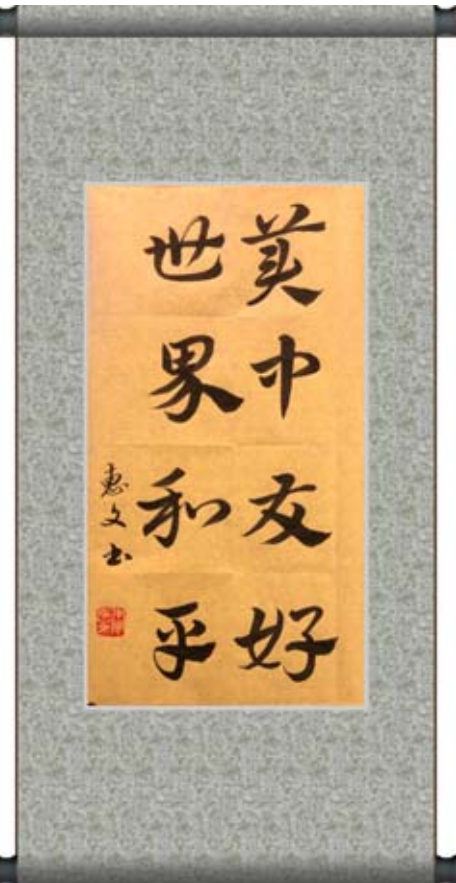 美中友好
世界和平
惠文书